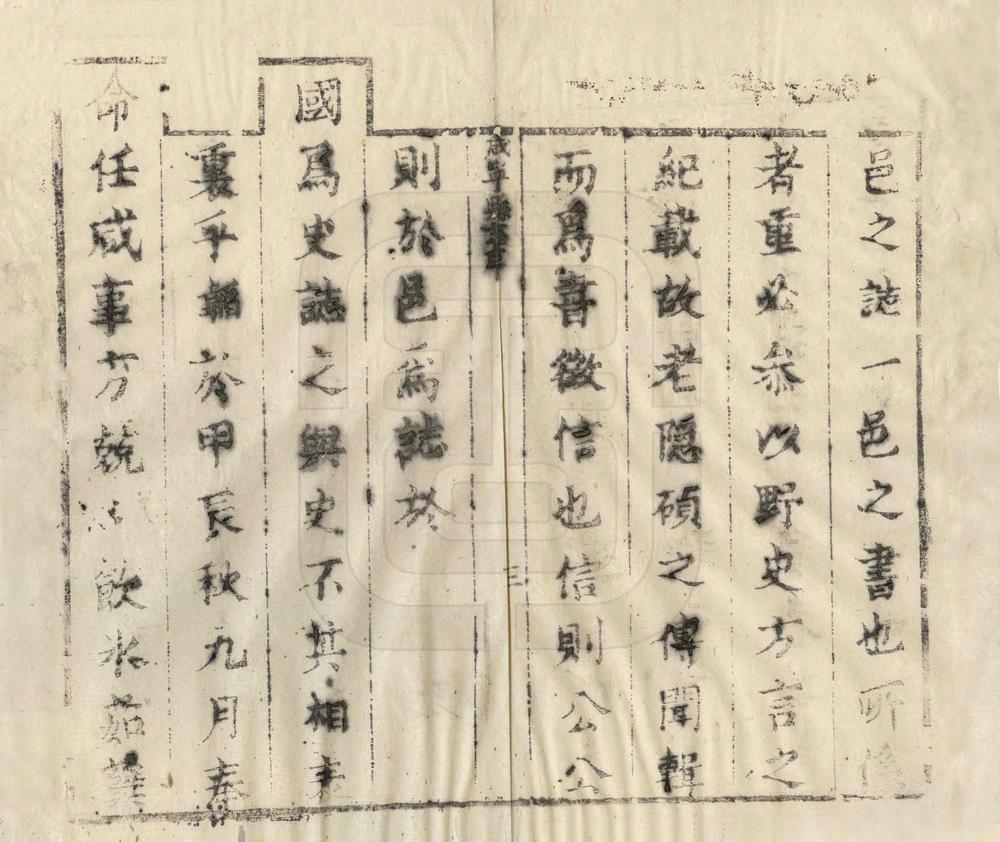 邑之誌一邑之書也所係
者重必參以野史方言之
紀載故老隱碩之傳聞輯
而爲書徵信也信則公公
則於邑爲誌於
國爲史誌之與史不其相表
裏乎 於甲辰秋九月奉
命任咸事方兢 飲氷茹蘗
三